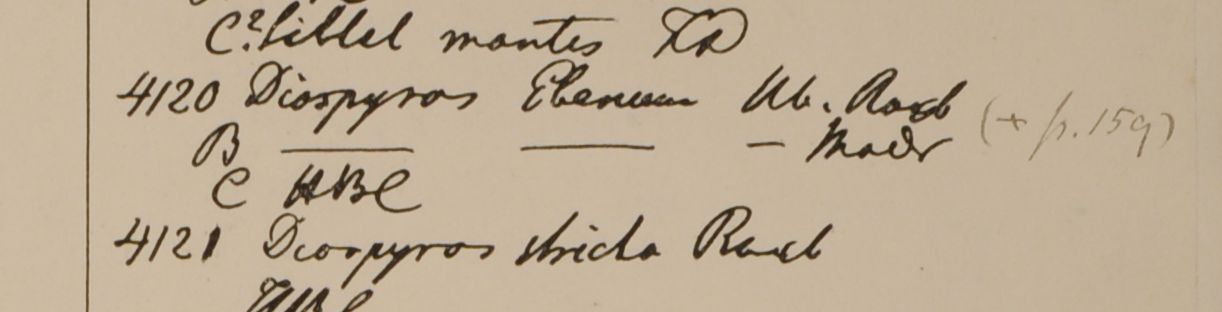 C? Sillet montes
4120 Diospyros Ebenum Hb. Roxb (+ p. 159)
B — — — Madr
C HBC
4121 Diospyros stricta Roxb
HBC